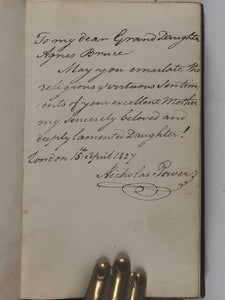 To my dear Grand Daughter
Agnes Bruce
May you emulate the
religious & virtuous Sentim
:ents of your excellent Mother
my sincerely beloved and
deeply lamented Daughter!
London 15th April 1827
Nicholas Power